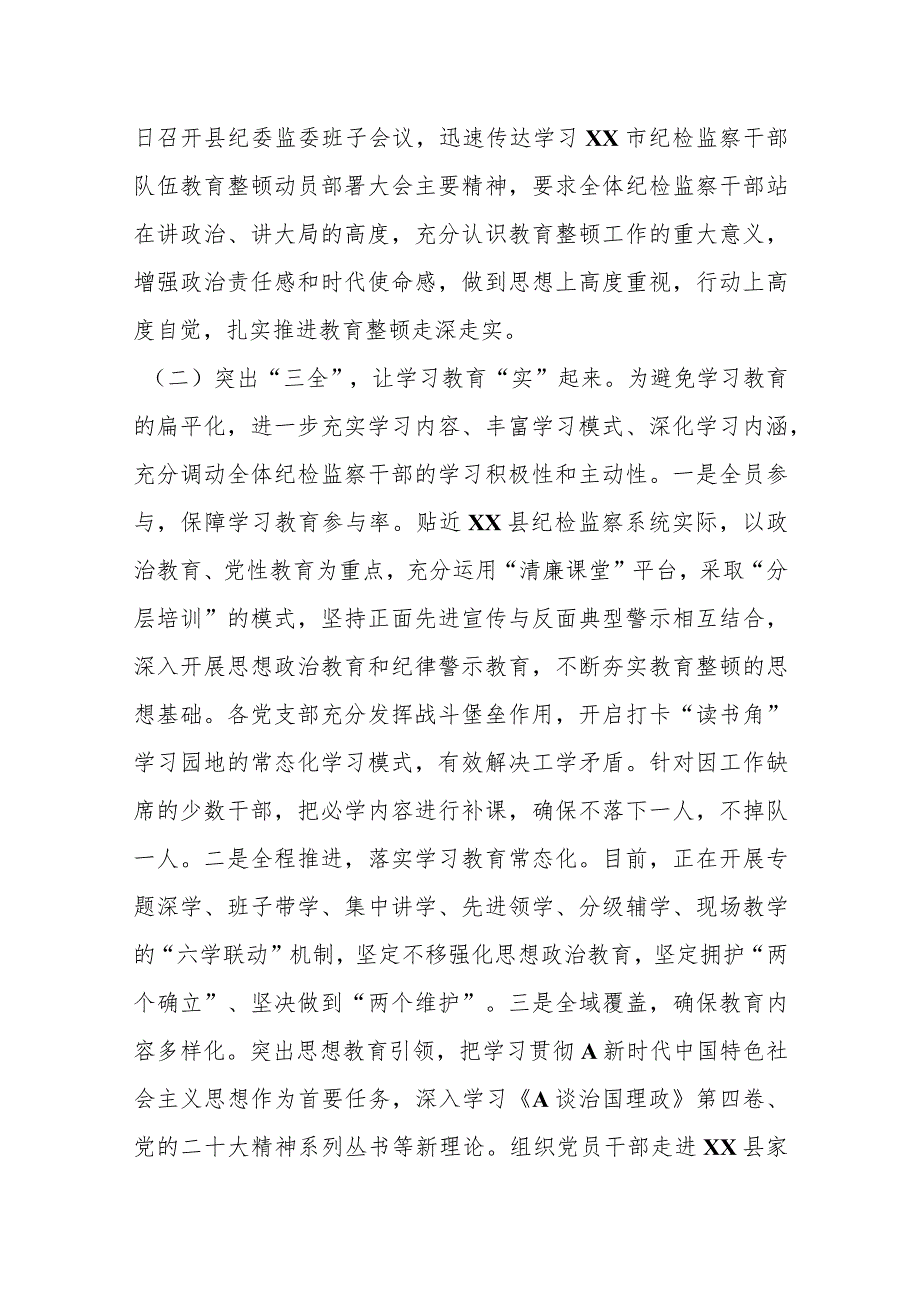 日召开县纪委监委班子会议，迅速传达学习 XX 市纪检监察干部
队伍教育整顿动员部署大会主要精神，要求全体纪检监察干部站
在讲政治、讲大局的高度，充分认识教育整顿工作的重大意义，
增强政治责任感和时代使命感，做到思想上高度重视，行动上高
度自觉，扎实推进教育整顿走深走实。
（二）突出“三全”，让学习教育“实”起来。为避免学习教育
的扁平化，进一步充实学习内容、丰富学习模式、深化学习内涵，
充分调动全体纪检监察干部的学习积极性和主动性。一是全员参
与，保障学习教育参与率。贴近 XX 县纪检监察系统实际，以政
治教育、党性教育为重点，充分运用“清廉课堂”平台，采取“分
层培训”的模式，坚持正面先进宣传与反面典型警示相互结合，
深入开展思想政治教育和纪律警示教育，不断夯实教育整顿的思
想基础。各党支部充分发挥战斗堡垒作用，开启打卡“读书角”
学习园地的常态化学习模式，有效解决工学矛盾。针对因工作缺
席的少数干部，把必学内容进行补课，确保不落下一人，不掉队
一人。二是全程推进，落实学习教育常态化。目前，正在开展专
题深学、班子带学、集中讲学、先进领学、分级辅学、现场教学
的“六学联动”机制，坚定不移强化思想政治教育，坚定拥护“两
个确立”、坚决做到“两个维护”。三是全域覆盖，确保教育内
容多样化。突出思想教育引领，把学习贯彻 A 新时代中国特色社
会主义思想作为首要任务，深入学习《A 谈治国理政》第四卷、
党的二十大精神系列丛书等新理论。组织党员干部走进 XX 县家